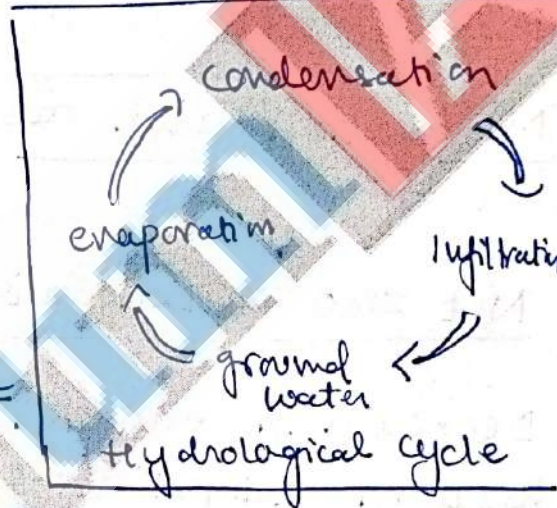 condensation
evaporation
Infiltratio
ground
water
Hydrological cycle